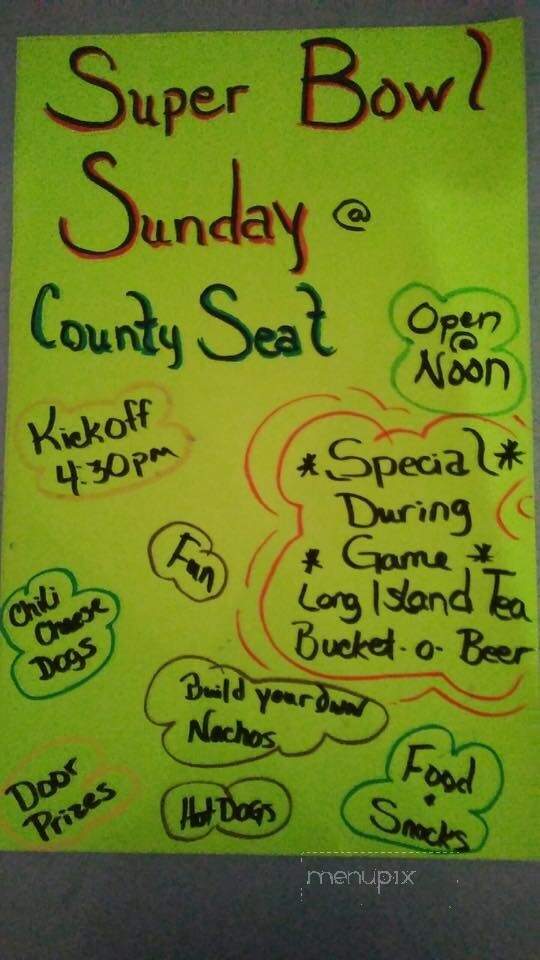 Super Bowl
Sunday @
County Seat
Open
@
Noon
Kickoff
4:30pm
*Special*
During
* Game *
Long Island Tea
Bucket-o-Beer
Fun
Chili
Cheese
Dogs
Build your own
Nachos
Door
Prizes
Hot Dogs
Food
*
Snacks
menupix